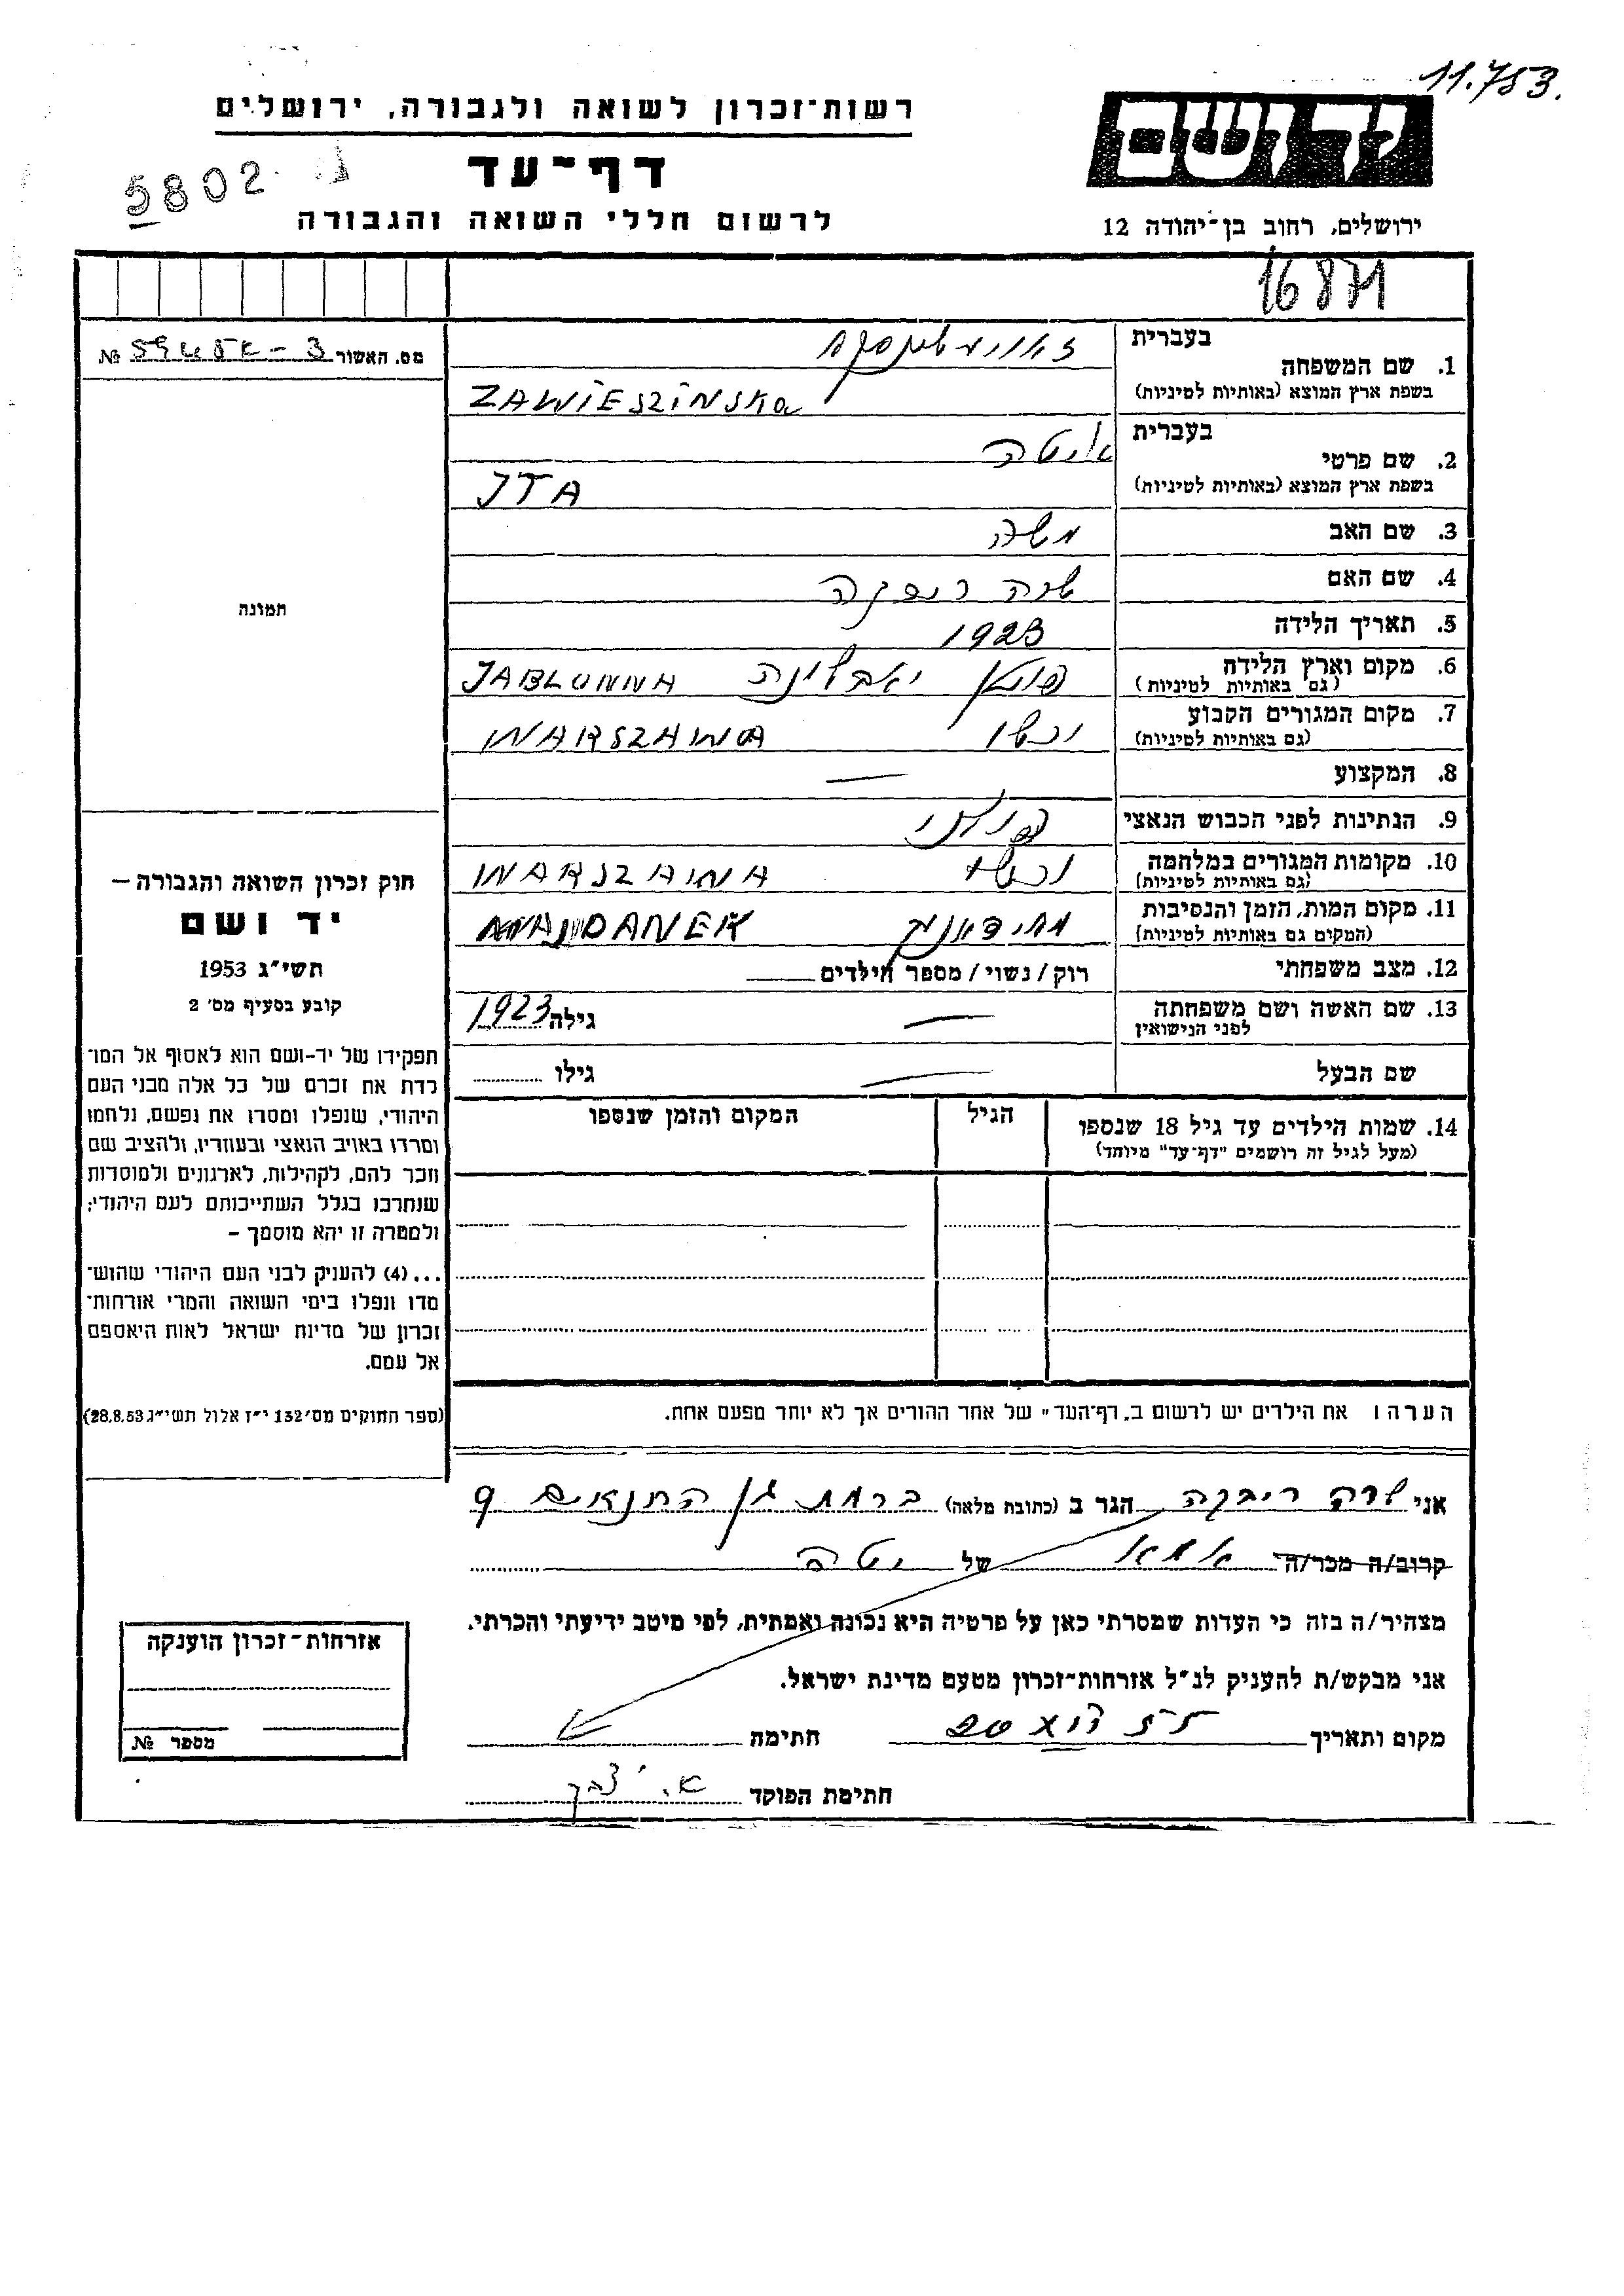 11.753.
רשות־זכרון לשואה ולגבורה, ירושלים
יד ושם
דף־עד
5802
לרשום חללי השואה והגבורה
ירושלים, רחוב בן־יהודה 12
16871
מס. האשור № 3
1. שם המשפחה
בעברית
בשפת ארץ המוצא (באותיות לטיניות)
ZAWIESZINSKA
2. שם פרטי
בעברית איטה
בשפת ארץ המוצא (באותיות לטיניות)
JTA
3. שם האב משה
4. שם האם שרה ריבקה
5. תאריך הלידה 1923
6. מקום וארץ הלידה פולין יאבלונה JABLONNA
(גם באותיות לטיניות)
7. מקום המגורים הקבוע ורשו WARSZAWA
(גם באותיות לטיניות)
8. המקצוע —
9. הנתינות לפני הכבוש הנאצי פולני
10. מקומות המגורים במלחמה ורשו WARSZAWA
(גם באותיות לטיניות)
11. מקום המות, הזמן והנסיבות מיידאנק MAJDANEK
(המקום גם באותיות לטיניות)
12. מצב משפחתי רוק / נשוי / מספר הילדים
13. שם האשה ושם משפחתה — גילה 1923
לפני הנישואין
שם הבעל — גילו
14. שמות הילדים עד גיל 18 שנספו הגיל המקום והזמן שנספו
(מעל לגיל זה רושמים "דף־עד" מיוחד)
הערה: את הילדים יש לרשום ב„דף־העד" של אחד ההורים אך לא יותר מפעם אחת.
תמונה
חוק זכרון השואה והגבורה –
יד ושם
תשי״ג 1953
קובע בסעיף מס׳ 2
תפקידו של יד-ושם הוא לאסוף אל המו־
לדת את זכרם של כל אלה מבני העם
היהודי, שנפלו ומסרו את נפשם, נלחמו
ומרדו באויב הנאצי ובעוזריו, ולהציב שם
וזכר להם, לקהילות, לארגונים ולמוסדות
שנחרבו בגלל השתייכותם לעם היהודי;
ולמטרה זו יהא מוסמך –
...(4) להעניק לבני העם היהודי שהוש־
מדו ונפלו בימי השואה והמרי אזרחות־
זכרון של מדינת ישראל לאות היאספם
אל עמם.
(ספר החוקים מס׳ 132 י״ז אלול תשי״ג 28.8.53)
אני שרה ריבקה הגר ב (כתובת מלאה) ברמת גן התנאים 9
קרוב/ה מכר/ה אמא של יטה
מצהיר/ה בזה כי העדות שמסרתי כאן על פרטיה היא נכונה ואמתית, לפי מיטב ידיעתי והכרתי.
אני מבקש/ת להעניק לנ״ל אזרחות־זכרון מטעם מדינת ישראל.
מקום ותאריך חתימה
חתימת הפוקד
אזרחות־זכרון הוענקה
מספר №